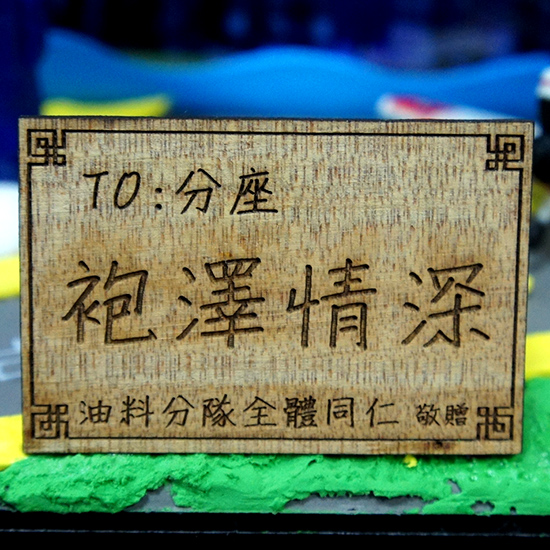 TO:分座
袍澤情深
油料分隊全體同仁 敬贈